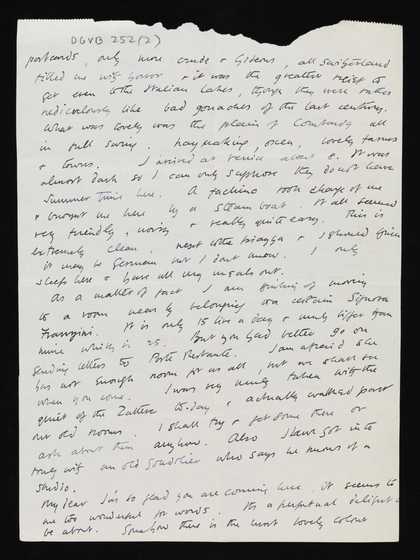 DGVB 252(2)
postcards, only more crude & hideous, all Switzerland
filled me with horror & it was the greatest relief to
get even to the Italian Lakes, though they were rather
rediculously like bad gouaches of the last century.
What was lovely was the plain of Lombardy all
in full swing. haymaking, oxen, lovely farms
& towns. I arrived at Venice about 8. It was
almost dark so I can only suppose they do not have
Summer Time here. A fachino took charge of me
& brought me here by a steam boat. It all seemed
very friendly, noisy & really quite easy. This is
extremely clean. next to the piazza &
it may be German but I dont know. I only
sleep here & have all my meals out.
As a matter of fact I am thinking of moving
to a room nearby belonging to a certain Signora
Frangini. It is only 15 lire a day & much bigger than
mine which is 25. But you had better go on
sending letters to Poste Restante. I am afraid she
has not enough room for us all, but we shall see
when you come. I was very much taken with the
quiet of the Zattere to-day & actually walked past
our old rooms. I shall try & get some there or
ask about them anyhow. Also I have got into
touch with an old gondolier who says he knows of a
studio.
My dear I'm so glad you are coming here. It seems to
me too wonderful for words. It's a perpetual delight to
be about. Somehow there is the most lovely colour